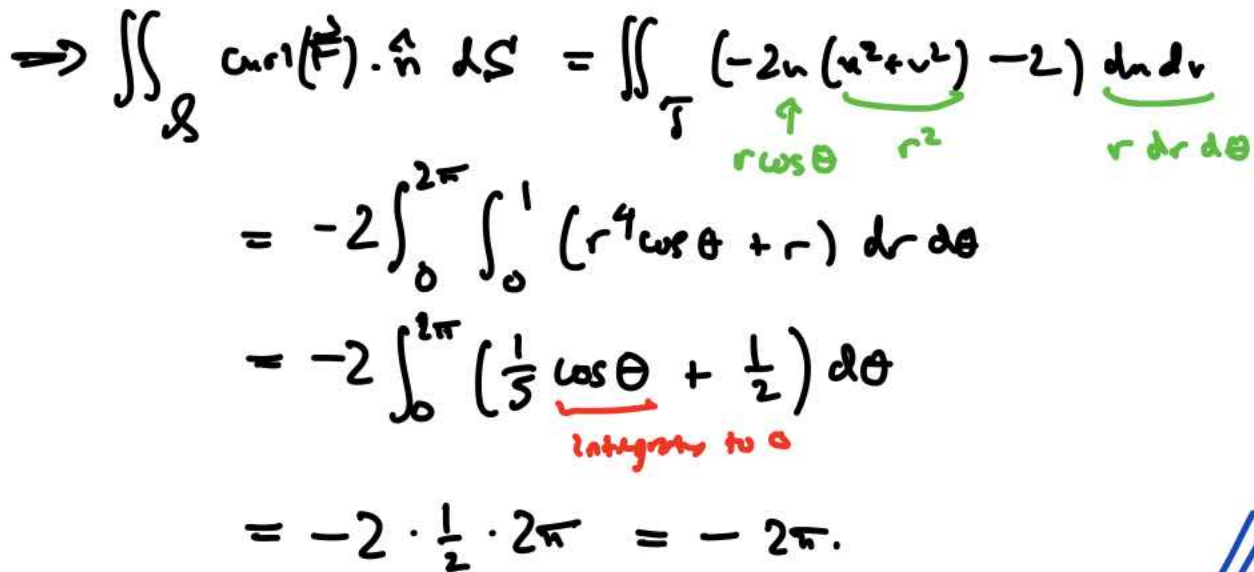 ⇒ ∬_S curl(F⃗) · n̂ dS = ∬_T (-2u (u²+v²) - 2) du dv
r cos θ r² r dr dθ
= -2 ∫₀^{2π} ∫₀¹ (r⁴ cos θ + r) dr dθ
= -2 ∫₀^{2π} (1/5 cos θ + 1/2) dθ
integrates to 0
= -2 · 1/2 · 2π = - 2π.